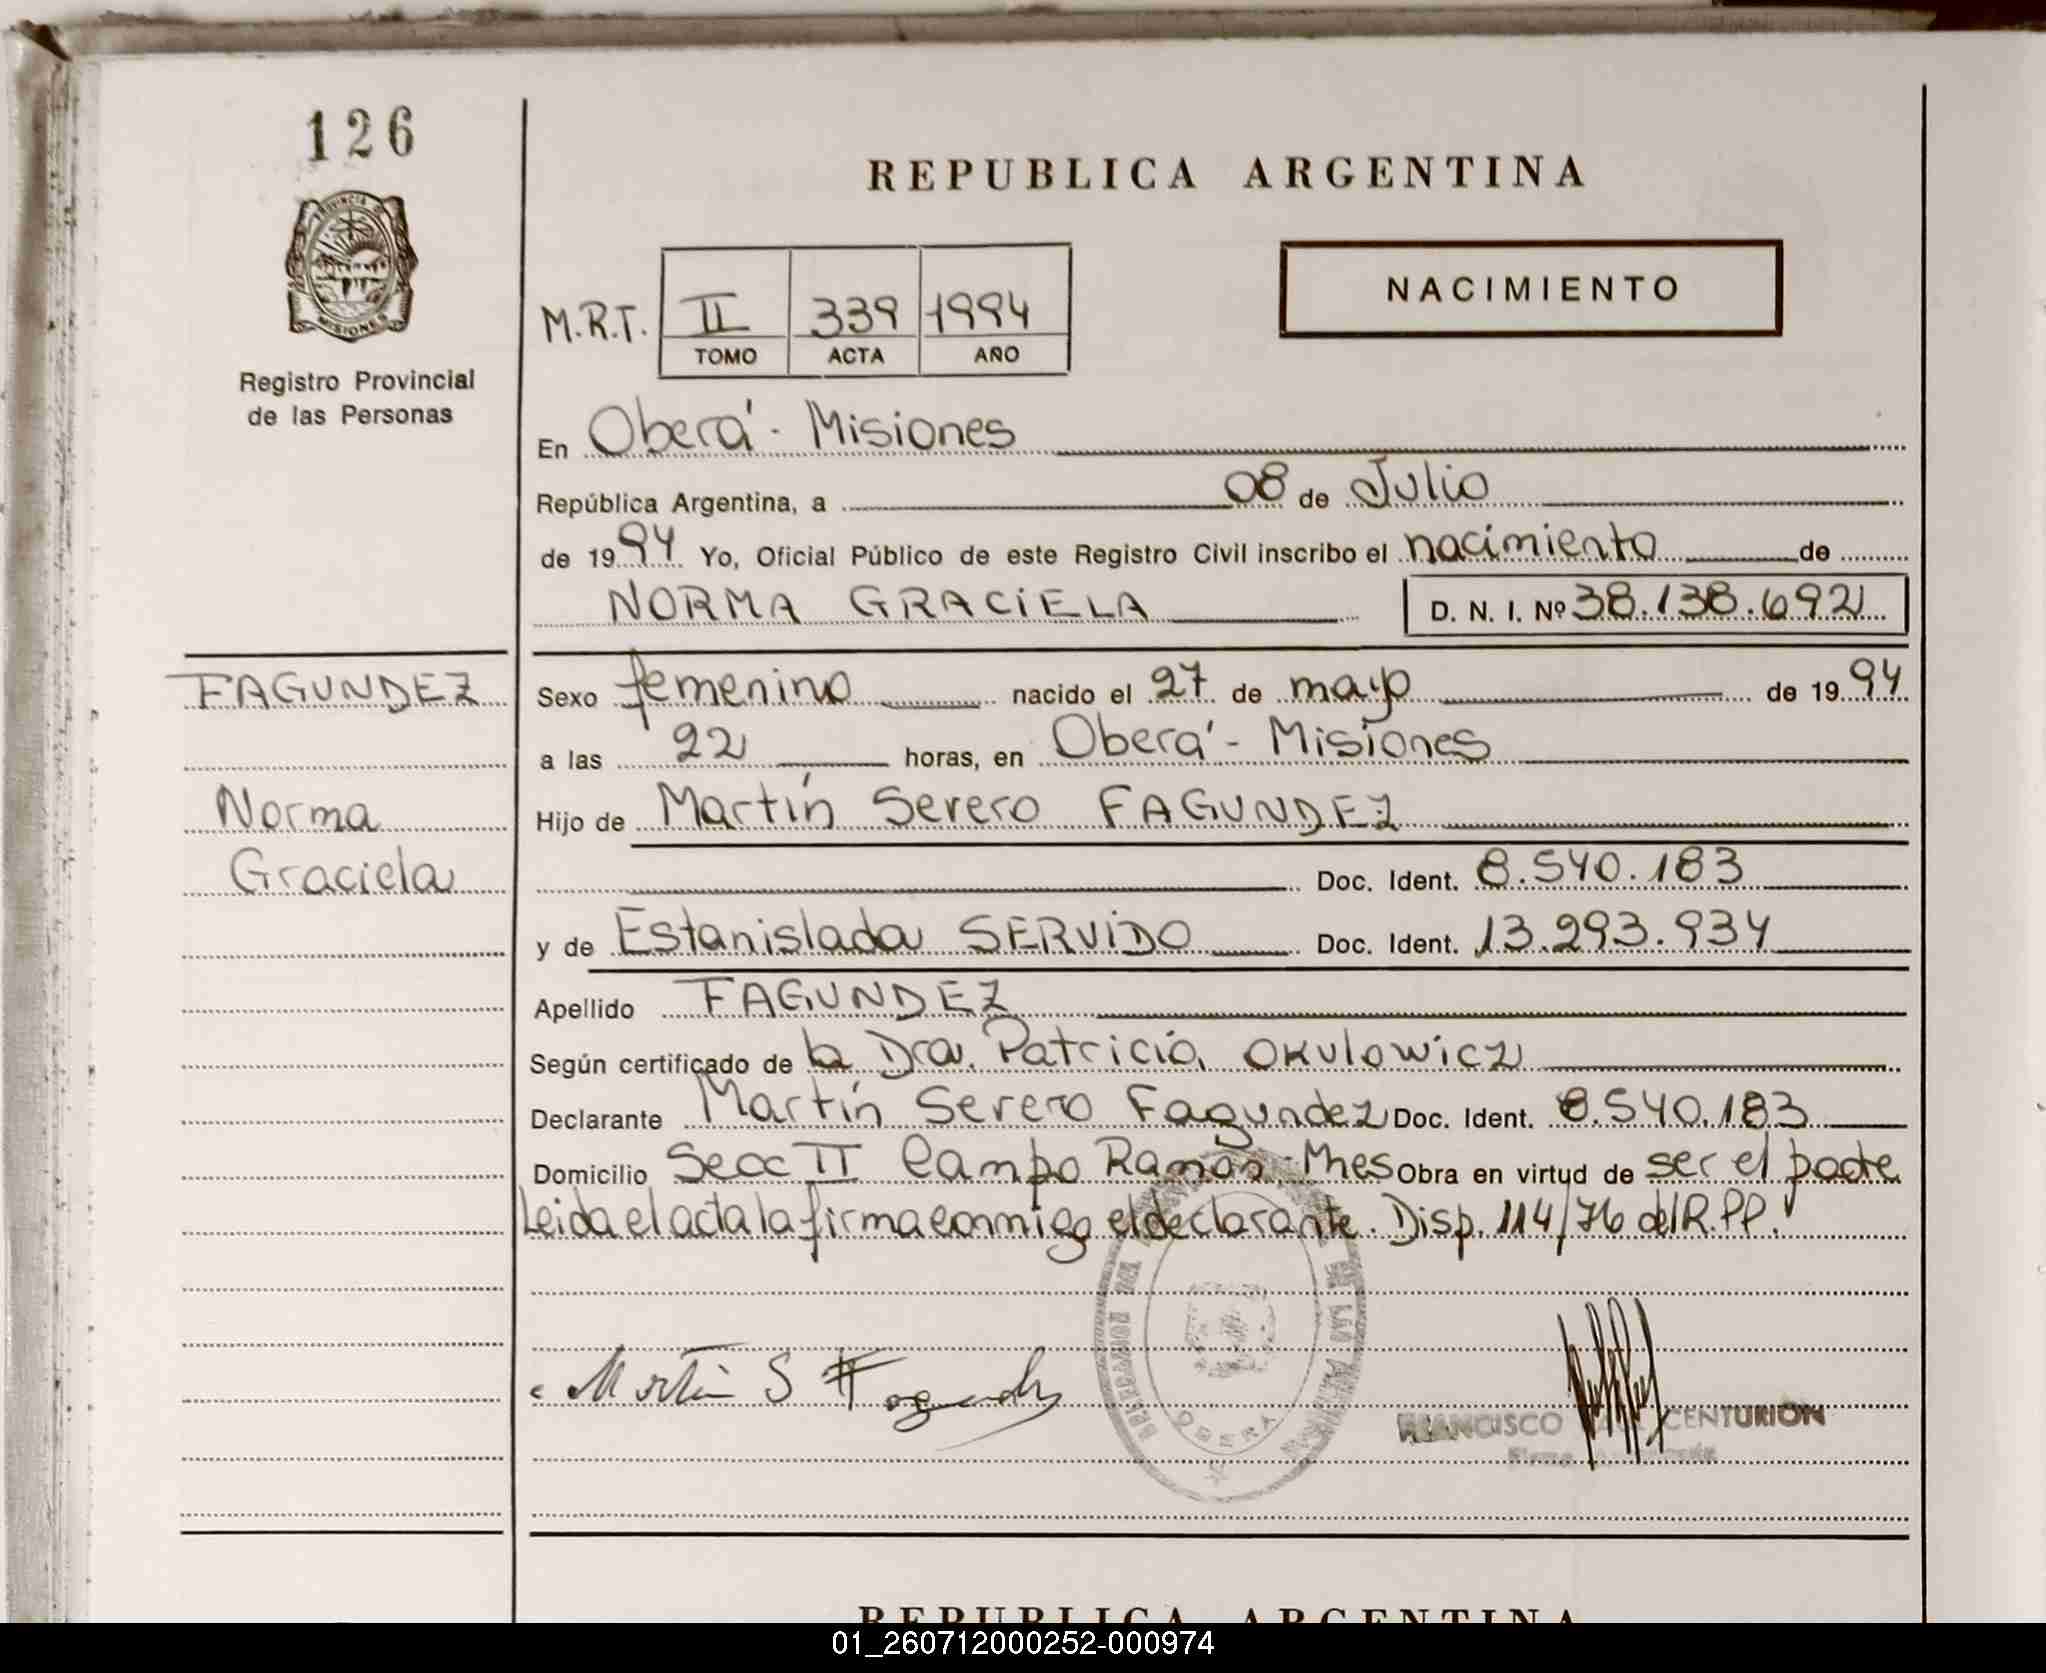 126
PROVINCIA DE
MISIONES
Registro Provincial
de las Personas
REPUBLICA ARGENTINA
NACIMIENTO
M.R.T. II 339 1994
TOMO ACTA AÑO
En Oberá - Misiones
República Argentina, a 08 de Julio
de 1994 Yo, Oficial Público de este Registro Civil inscribo el nacimiento de
NORMA GRACIELA D. N. I. Nº 38.138.692
FAGUNDEZ
Norma
Graciela
Sexo femenino nacido el 27 de mayo de 1994
a las 22 horas, en Oberá - Misiones
Hijo de Martín Severo FAGUNDEZ
Doc. Ident. 8.540.183
y de Estanislada SERVIDO Doc. Ident. 13.293.934
Apellido FAGUNDEZ
Según certificado de la Dra. Patricia OKulowicz
Declarante Martín Severo Fagundez Doc. Ident. 8.540.183
Domicilio Secc II Campo Ramón - Mnes Obra en virtud de ser el padre
Leida el acta la firma conmigo el declarante. Disp. 114/76 del R.PP.
Martin S Fagundez
DELEGACION DE LAS
OBERA
FRANCISCO CENTURION
REPUBLICA ARGENTINA
01_260712000252-000974